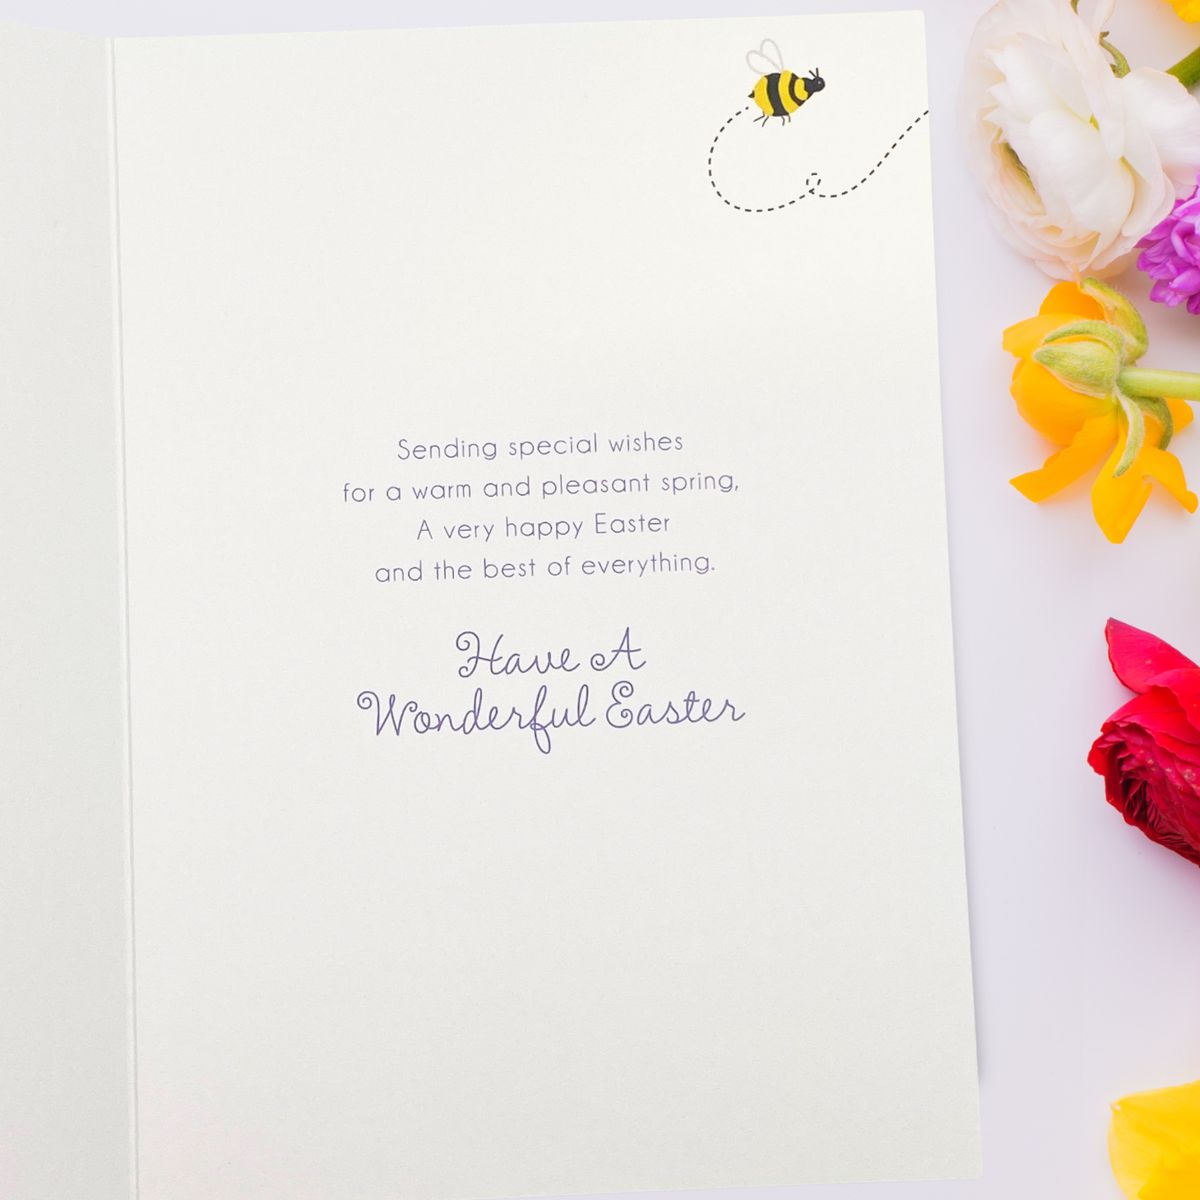 Sending special wishes
for a warm and pleasant spring,
A very happy Easter
and the best of everything.
Have A
Wonderful Easter